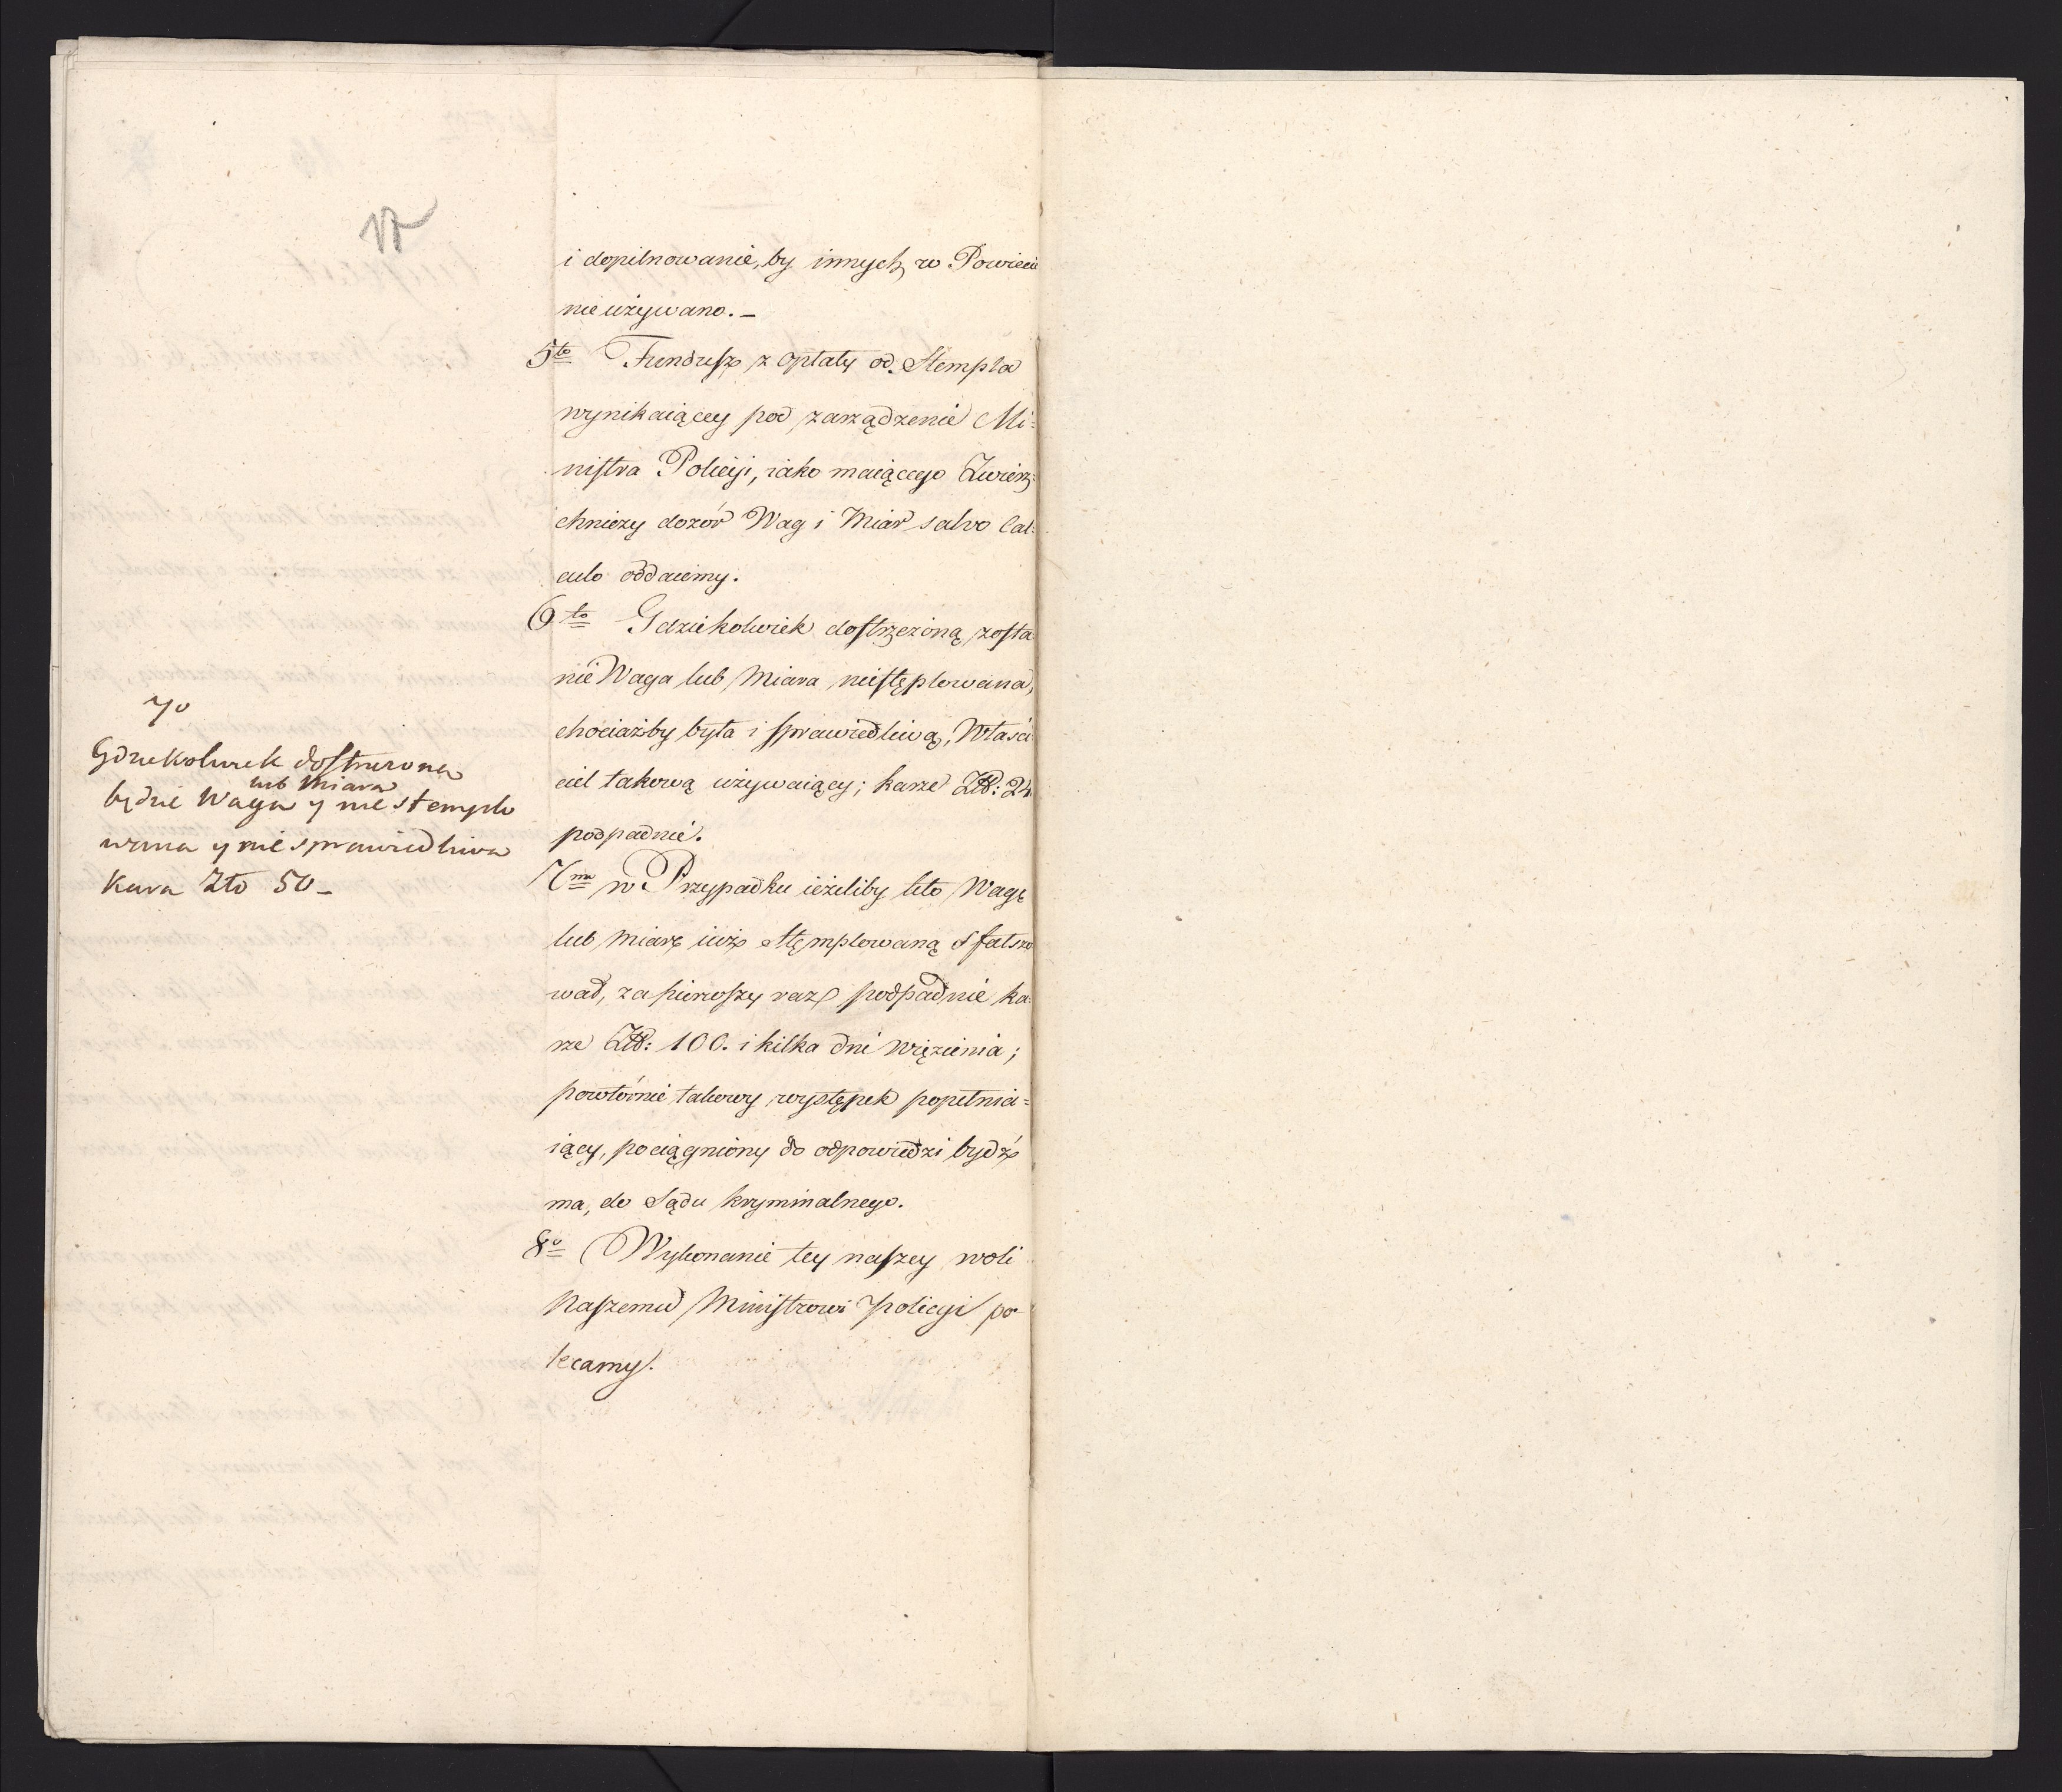 17
i dopilnowanie, by innych w Powiecie
nie używano. —
5to Fundusz z opłaty od Stempla
wynikaiącey pod zarządzenie Mi=
nistra Policyi, iako maiącego Zwierz=
chniczy dozór Wag i Miar salvo Cal=
culo oddaiemy.
6to Gdziekolwiek dostrzeżoną zosta
nie Waga lub Miara niestęplowana,
chociażby była i sprawiedliwą, Właści
ciel takową używaiący; karze Złt: 24
podpadnie.
7mo w Przypadku ieżeliby kto Wagę
lub miarę iuż stęmplowaną sfałszo
wał, za pierwszy raz podpadnie ka=
rze Złt: 100. i kilka dni więzienia;
powtórnie takowy występek popełnia=
iący, pociągniony do odpowiedzi bydź
ma, do Sądu kryminalnego.
8o Wykonanie tey naszey woli
Naszemu Ministrowi Policyi po
lecamy.
7o
Gdziekolwiek dostrzeżona
lub Miara
będzie Waga y nie stemplo
wana y nie sprawiedliwa
Kara Złto 50 —